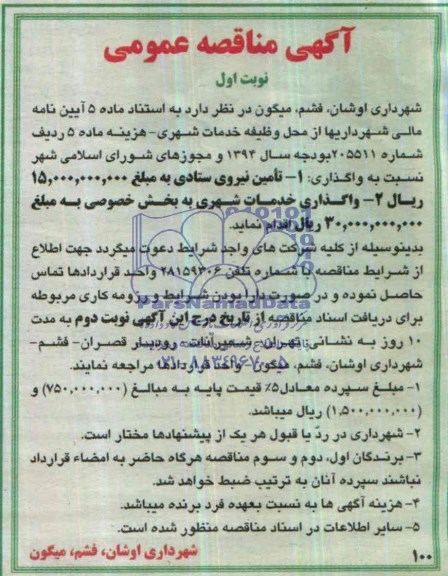 آگهی مناقصه عمومی
نوبت اول
شهرداری اوشان، فشم، میگون در نظر دارد به استناد ماده ۵ آیین نامه
مالی شهرداریها از محل وظیفه خدمات شهری- هزینه ماده ۵ ردیف
شماره ۲۰۵۵۱۱بودجه سال ۱۳۹۴ و مجوزهای شورای اسلامی شهر
نسبت به واگذاری: ۱- تأمین نیروی ستادی به مبلغ ۱۵,۰۰۰,۰۰۰,۰۰۰
ریال ۲- واگذاری خدمات شهری به بخش خصوصی به مبلغ
۳۰,۰۰۰,۰۰۰,۰۰۰ ریال اقدام نماید.
بدینوسیله از کلیه شرکت های واجد شرایط دعوت میگردد جهت اطلاع
از شرایط مناقصه با شماره تلفن ۲۸۱۵۹۳۰۶ واحد قراردادها تماس
حاصل نموده و در صورت دارا بودن شرایط و رزومه کاری مربوطه
برای دریافت اسناد مناقصه از تاریخ درج این آگهی نوبت دوم به مدت
۱۰ روز به نشانی: تهران- شمیرانات- رودبار قصران- فشم-
شهرداری اوشان، فشم، میگون- واحد قراردادها مراجعه نمایند.
۱- مبلغ سپرده معادل۵٪ قیمت پایه به مبالغ (۷۵۰,۰۰۰,۰۰۰) و
(۱,۵۰۰,۰۰۰,۰۰۰) ریال میباشد.
۲- شهرداری در ردّ یا قبول هر یک از پیشنهادها مختار است.
۳- برندگان اول، دوم و سوم مناقصه هرگاه حاضر به امضاء قرارداد
نباشند سپرده آنان به ترتیب ضبط خواهد شد.
۴- هزینه آگهی ها به نسبت بعهده فرد برنده میباشد.
۵- سایر اطلاعات در اسناد مناقصه منظور شده است.
شهرداری اوشان، فشم، میگون
۱۰۰
ParsNamadData
۰۲۱-۸۸۳۴۹۶۷۰-۵